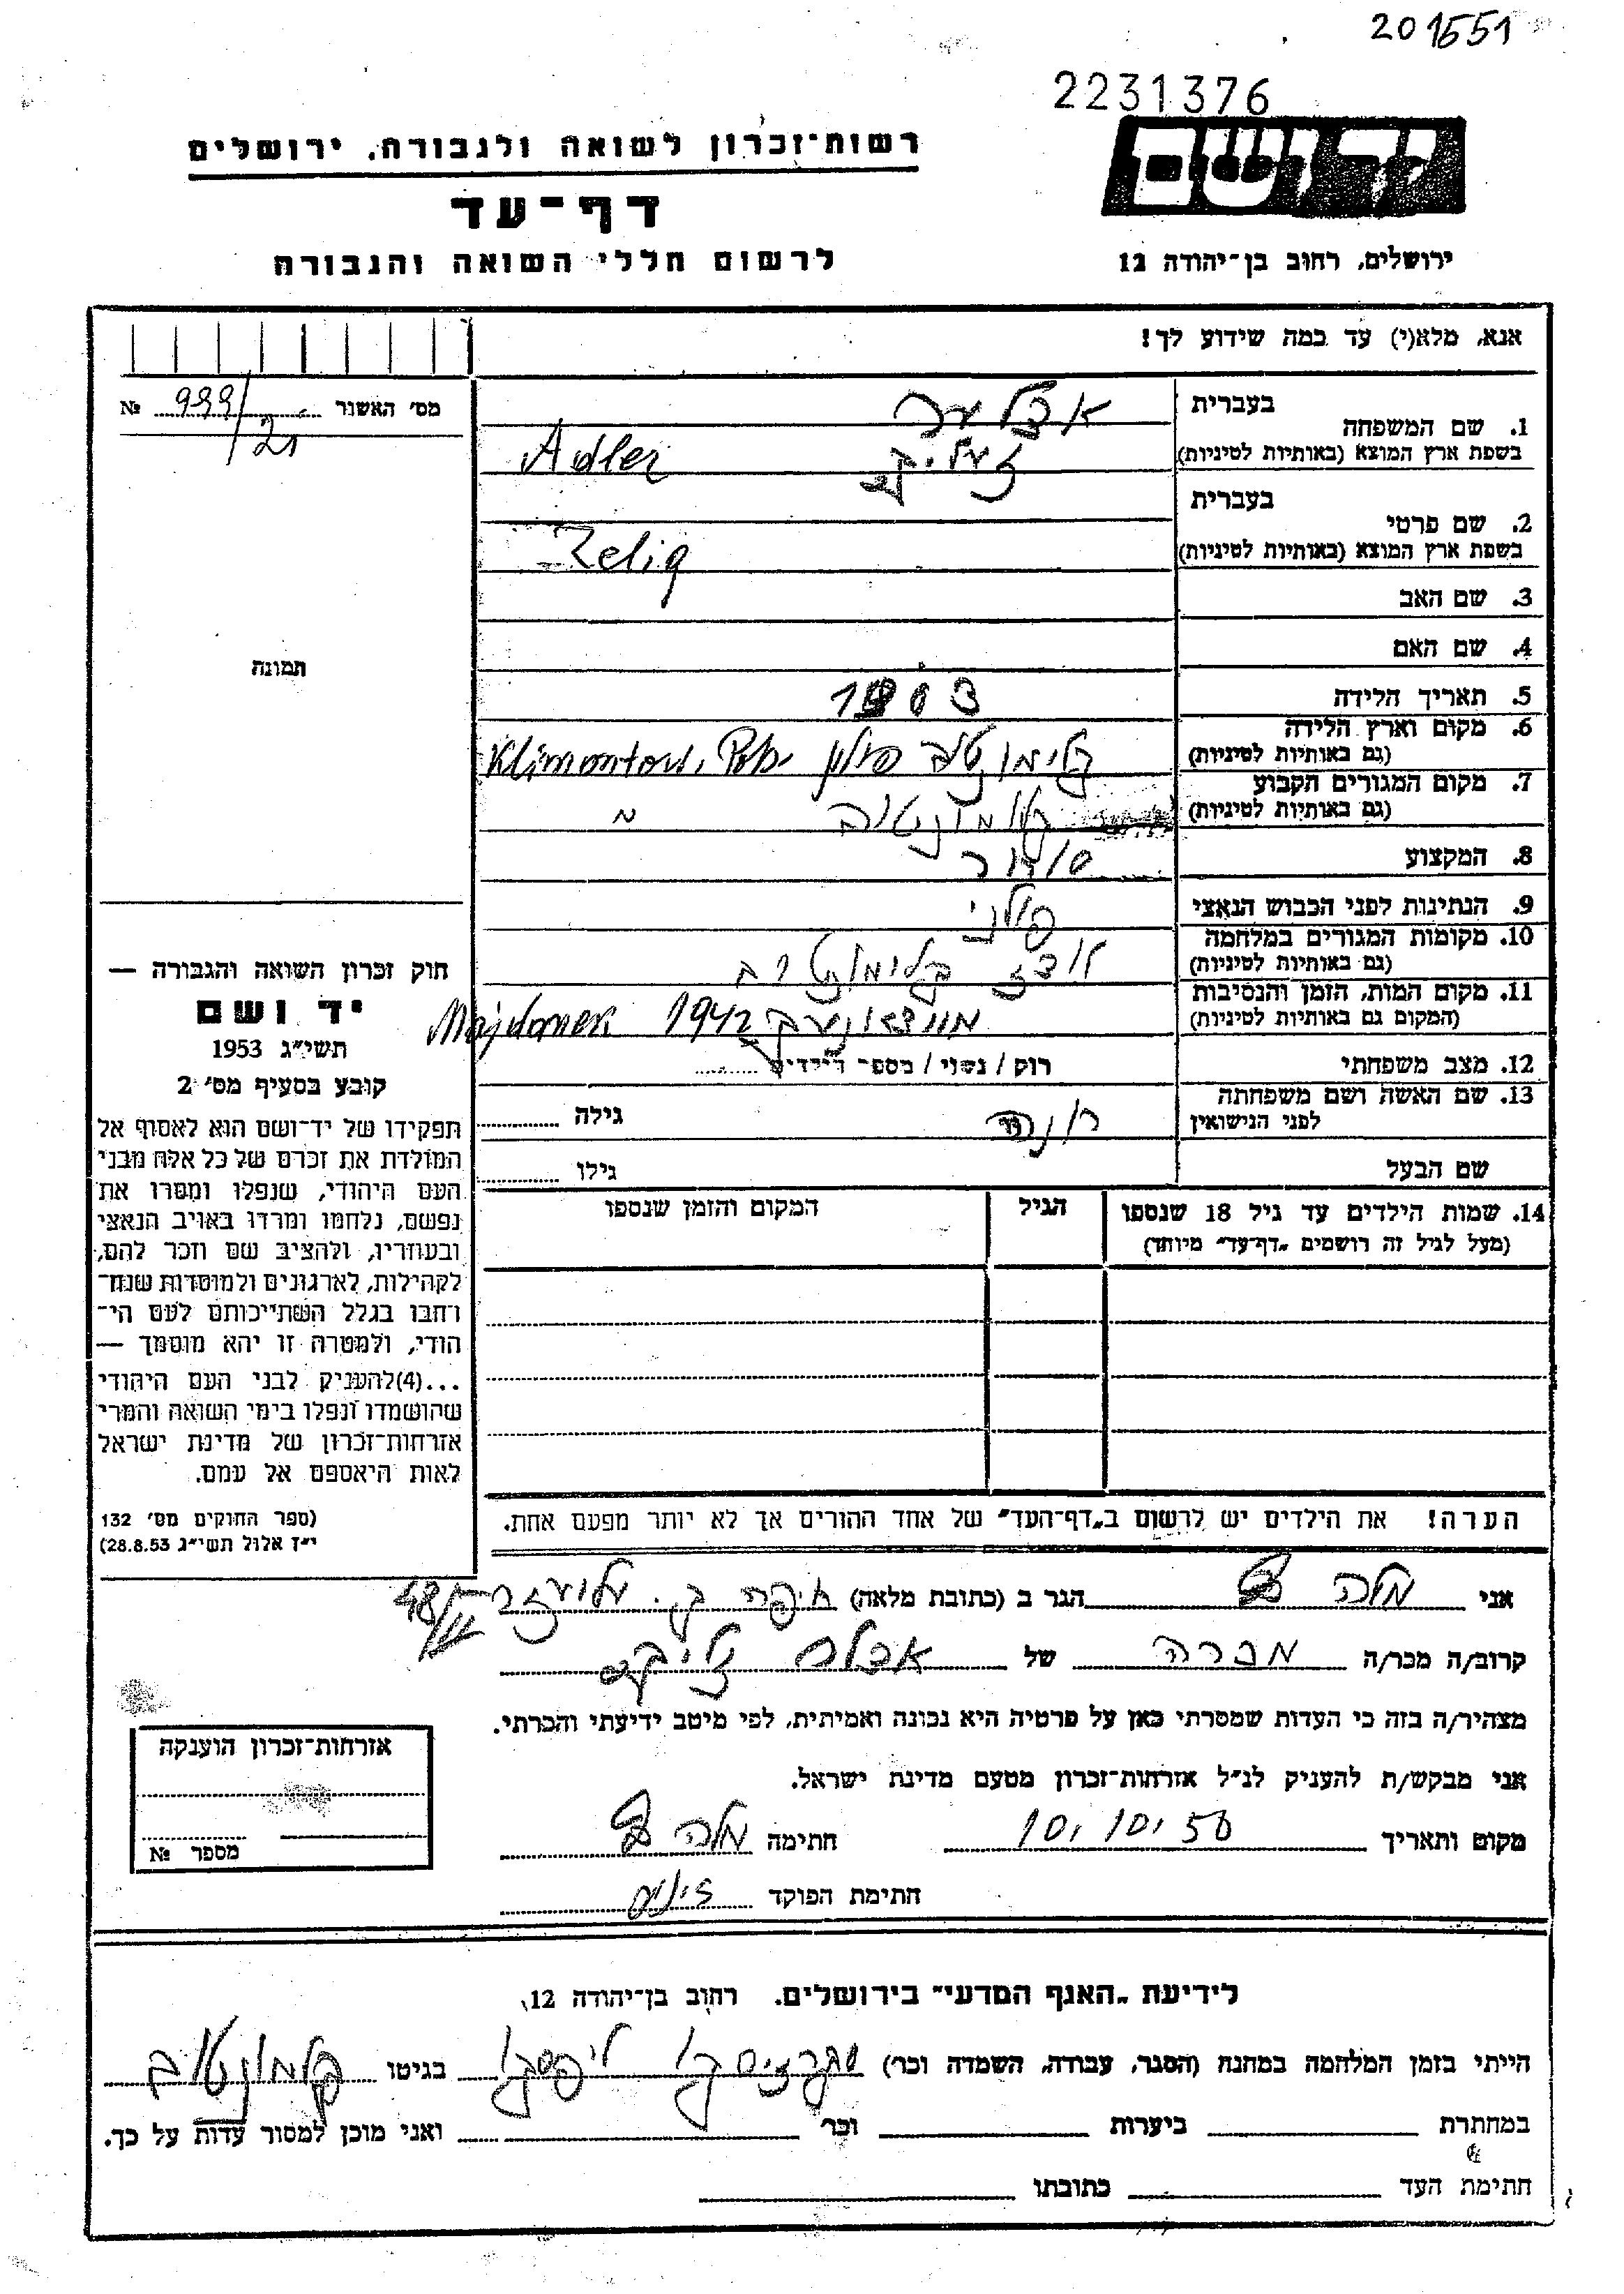 201551
2231376
יד ושם
רשות־זכרון לשואה ולגבורה, ירושלים
דף־עד
לרשום חללי השואה והגבורה
ירושלים, רחוב בן־יהודה 12
אנא, מלא(י) עד כמה שידוע לך!
מס׳ האשור 999/21 №
בעברית אדלער
1. שם המשפחה
בשפת ארץ המוצא (באותיות לטיניות) Adler
בעברית זעליק
2. שם פרטי
בשפת ארץ המוצא (באותיות לטיניות) Zelig
3. שם האב
4. שם האם
5. תאריך הלידה 1903
6. מקום וארץ הלידה קלימונטוב פולין Klimontow,
(גם באותיות לטיניות)
7. מקום המגורים הקבוע קלימונטוב
(גם באותיות לטיניות)
8. המקצוע סוחר
9. הנתינות לפני הכבוש הנאצי פולני
10. מקומות המגורים במלחמה לודז קלימונטוב
(גם באותיות לטיניות)
11. מקום המות, הזמן והנסיבות מיידאנעק 1942 Majdanek
(המקום גם באותיות לטיניות)
12. מצב משפחתי רוק / נשוי / מספר הילדים
13. שם האשה ושם משפחתה גילה
לפני הנישואין
שם הבעל גילו
14. שמות הילדים עד גיל 18 שנספו הגיל המקום והזמן שנספו
(מעל לגיל זה רושמים „דף־עד״ מיוחד)
הערה! את הילדים יש לרשום ב„דף־העד״ של אחד ההורים אך לא יותר מפעם אחת.
תמונה
חוק זכרון השואה והגבורה —
יד ושם
תשי״ג 1953
קובע בסעיף מס׳ 2
תפקידו של יד־ושם הוא לאסוף אל
המולדת את זכרם של כל אלה מבני
העם היהודי, שנפלו ומסרו את
נפשם, נלחמו ומרדו באויב הנאצי
ובעוזריו, ולהציב שם וזכר להם,
לקהילות, לארגונים ולמוסדות שנח־
רבו בגלל השתייכותם לעם הי־
הודי, ולמטרה זו יהא מוסמך —
...(4)להעניק לבני העם היהודי
שהושמדו ונפלו בימי השואה והמרי
אזרחות־זכרון של מדינת ישראל
לאות היאספם אל עמם.
(ספר החוקים מס׳ 132
י״ז אלול תשי״ג 28.8.53)
אני מלה הגר ב (כתובת מלאה) חיפה ק. אליעזר
קרוב/ה מכר/ה מכרה של אדלר זליק
מצהיר/ה בזה כי העדות שמסרתי כאן על פרטיה היא נכונה ואמיתית, לפי מיטב ידיעתי והכרתי.
אני מבקש/ת להעניק לנ״ל אזרחות־זכרון מטעם מדינת ישראל.
מקום ותאריך 10.10.56 חתימה מלה
חתימת הפוקד
אזרחות־זכרון הוענקה
מספר №
לידיעת „האגף המדעי״ בירושלים. רחוב בן־יהודה 12,
הייתי בזמן המלחמה במחנה (הסגר, עבודה, השמדה וכר׳) ליפסק בגיטו קלמונטוב
במחתרת ביערות וכר׳ ואני מוכן למסור עדות על כך.
חתימת העד כתובתו